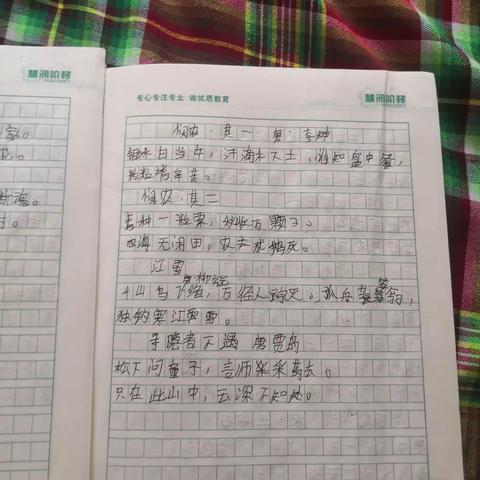 家。
花。
慧润阶梯
专心专注专业 做优质教育
慧润阶梯
悯农·其一 李绅
锄禾日当午,汗滴禾下土,谁知盘中餐,
粒粒皆辛苦。
悯农·其二
春种一粒粟,秋收万颗子。
四海无闲田,农夫犹饿死。
江雪
唐 柳宗元
千山鸟飞绝,万径人踪灭。孤舟蓑笠翁,
独钓寒江雪。
寻隐者不遇 唐 贾岛
松下问童子,言师采采药去。
只在此山中,云深不知处。